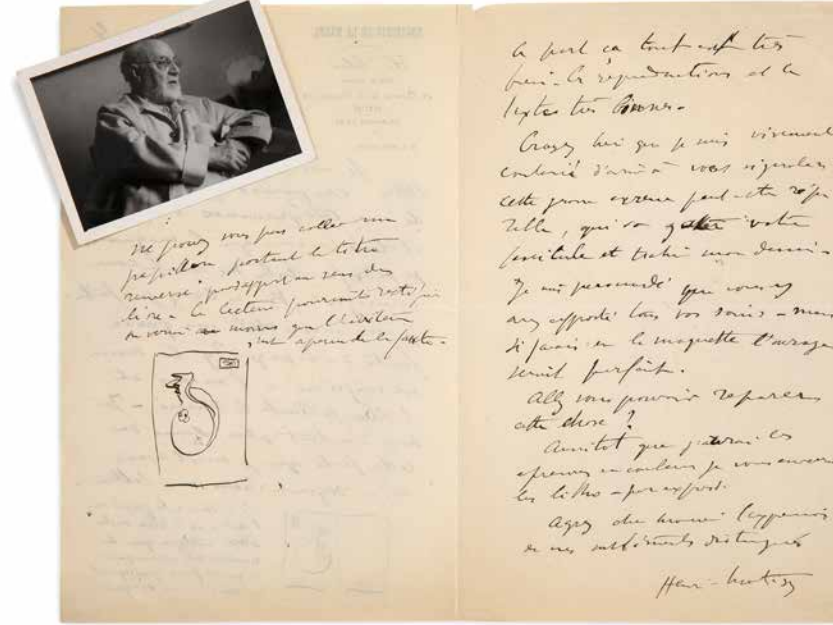 ne pouvez vous pas coller un
papillon portant le titre
renversé par rapport au sens du
livre - le lecteur pourrait rectifier
ou verrait au moins que l'éditeur
s'est aperçu de la faute -
à part ça tout est très
bien - les reproductions et le
texte très bonnes -
Croyez bien que je suis vivement
contrarié d'avoir à vous signaler
cette grosse erreur peut-être répa
rable, qui va gâter votre
fascicule et trahir mon dessin -
Je suis persuadé que vous y
avez apporté tous vos soins - mais
si j'avais eu la maquette l'ouvrage
serait parfait.
Allez vous pouvoir réparer
cette chose ?
Aussitôt que j'aurai les
épreuves en couleurs je vous enverrai
les litho -
Agréez cher Monsieur l'expression
de mes sentiments distingués
Henri-Matisse